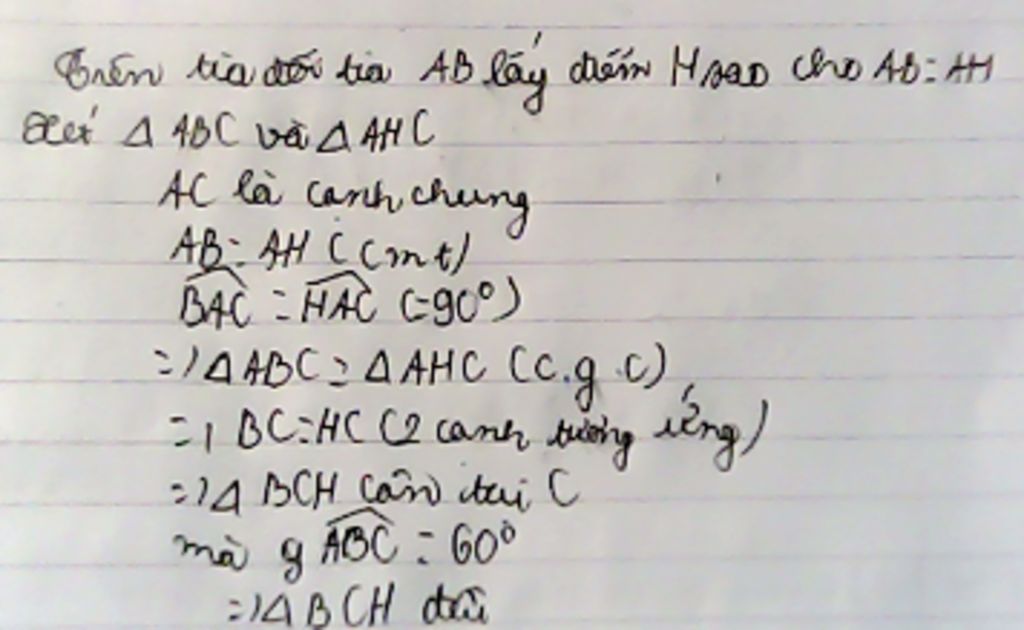 Trên tia đối tia AB lấy điểm H sao cho AB = AH
Xét Δ ABC và Δ AHC
AC là cạnh chung
AB = AH (cmt)
\widehat{BAC} = \widehat{HAC} (=90°)
=> Δ ABC = Δ AHC (c.g.c)
=> BC = HC (2 cạnh tương ứng)
=> Δ BCH cân tại C
mà g \widehat{ABC} = 60°
=> Δ BCH đều